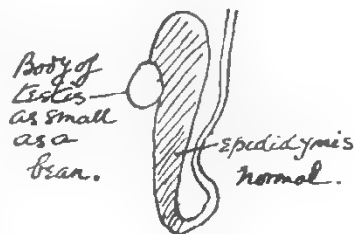 Body of
testis
as small
as a
bean.
Epididymis
normal.